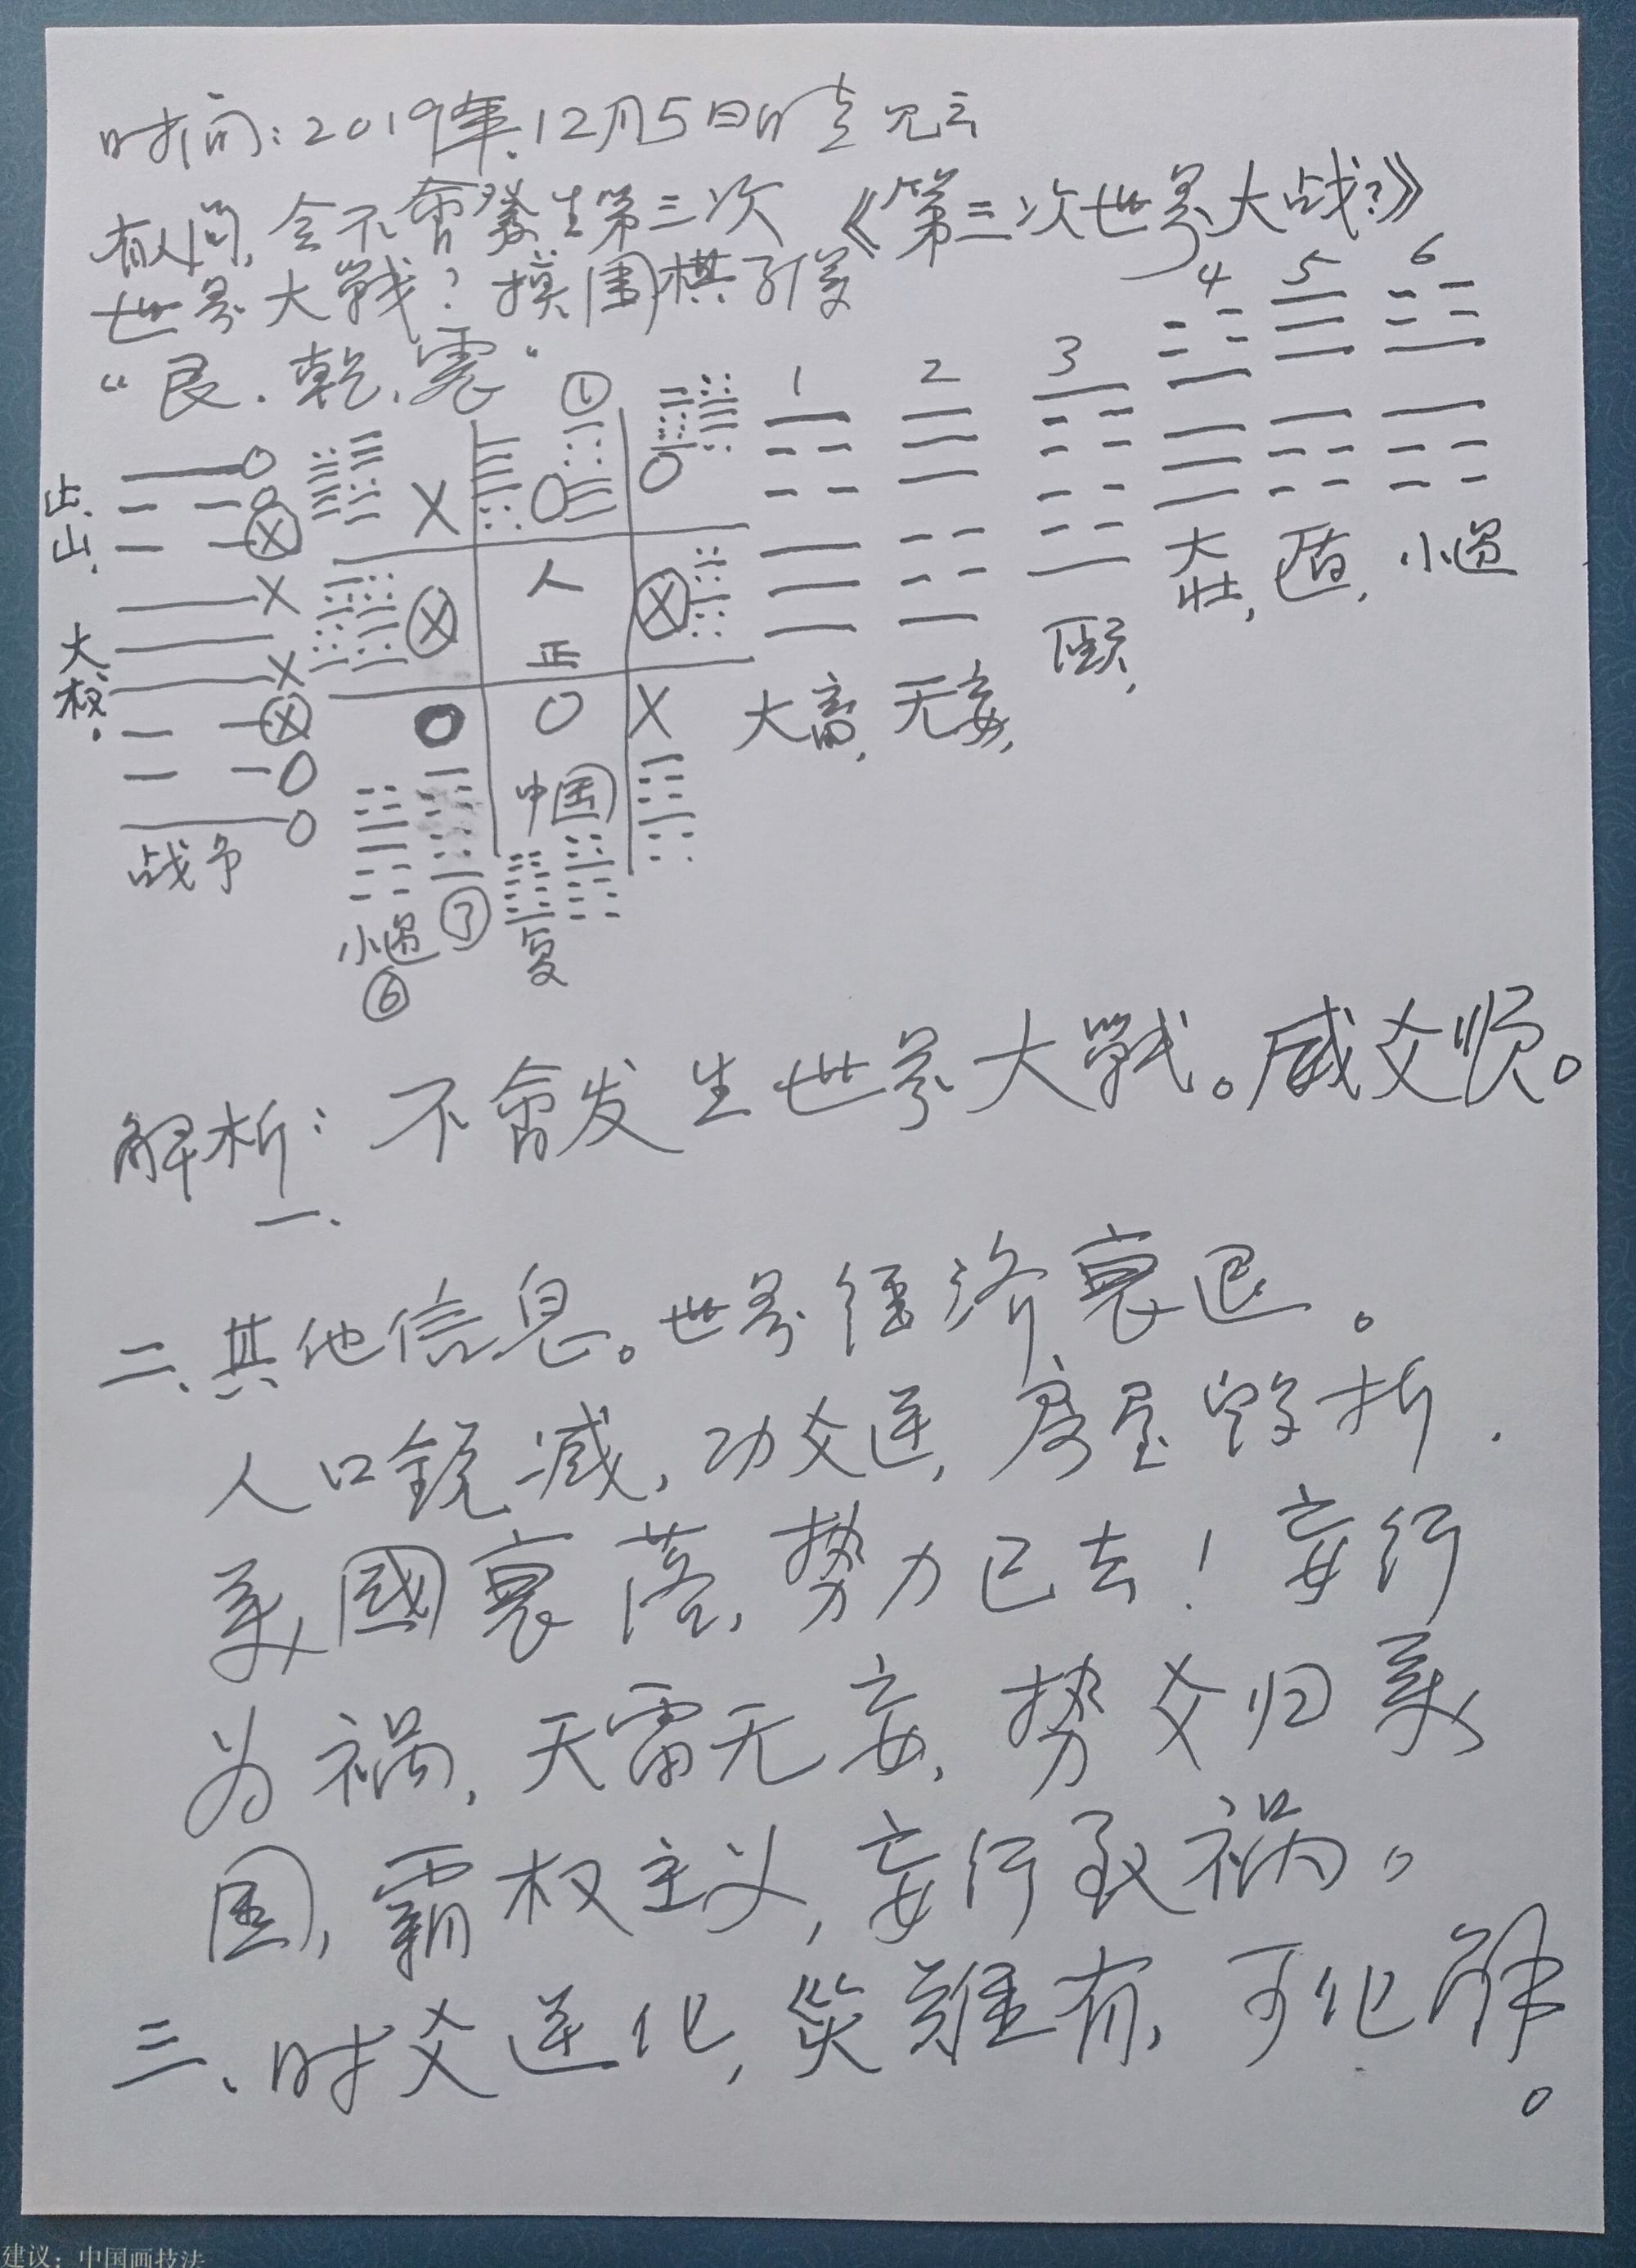 时间:2019年.12月5日晴见云
有人问,会不會發生第三次
《第三次世界大战?》
世界大戰?摸围棋子得
“艮.乾.震”
① 1 2 3 4 5 6
止.
山.
大
权.
战争
人
正
中国
大畜, 无妄, 頤, 大壮, 遁, 小過
小過
⑥
⑦
复
解析:不會发生世界大戰。威爻顺。
一.
二、其他信息。世界经济衰退。
人口銳减,功爻逆,房屋毁折.
美國衰落,势力已去!妄行
为祸,天雷无妄,势爻归美
国,霸权主义,妄行致祸。
三、时爻逆化,災難有,可化解。
建议:中国画技法